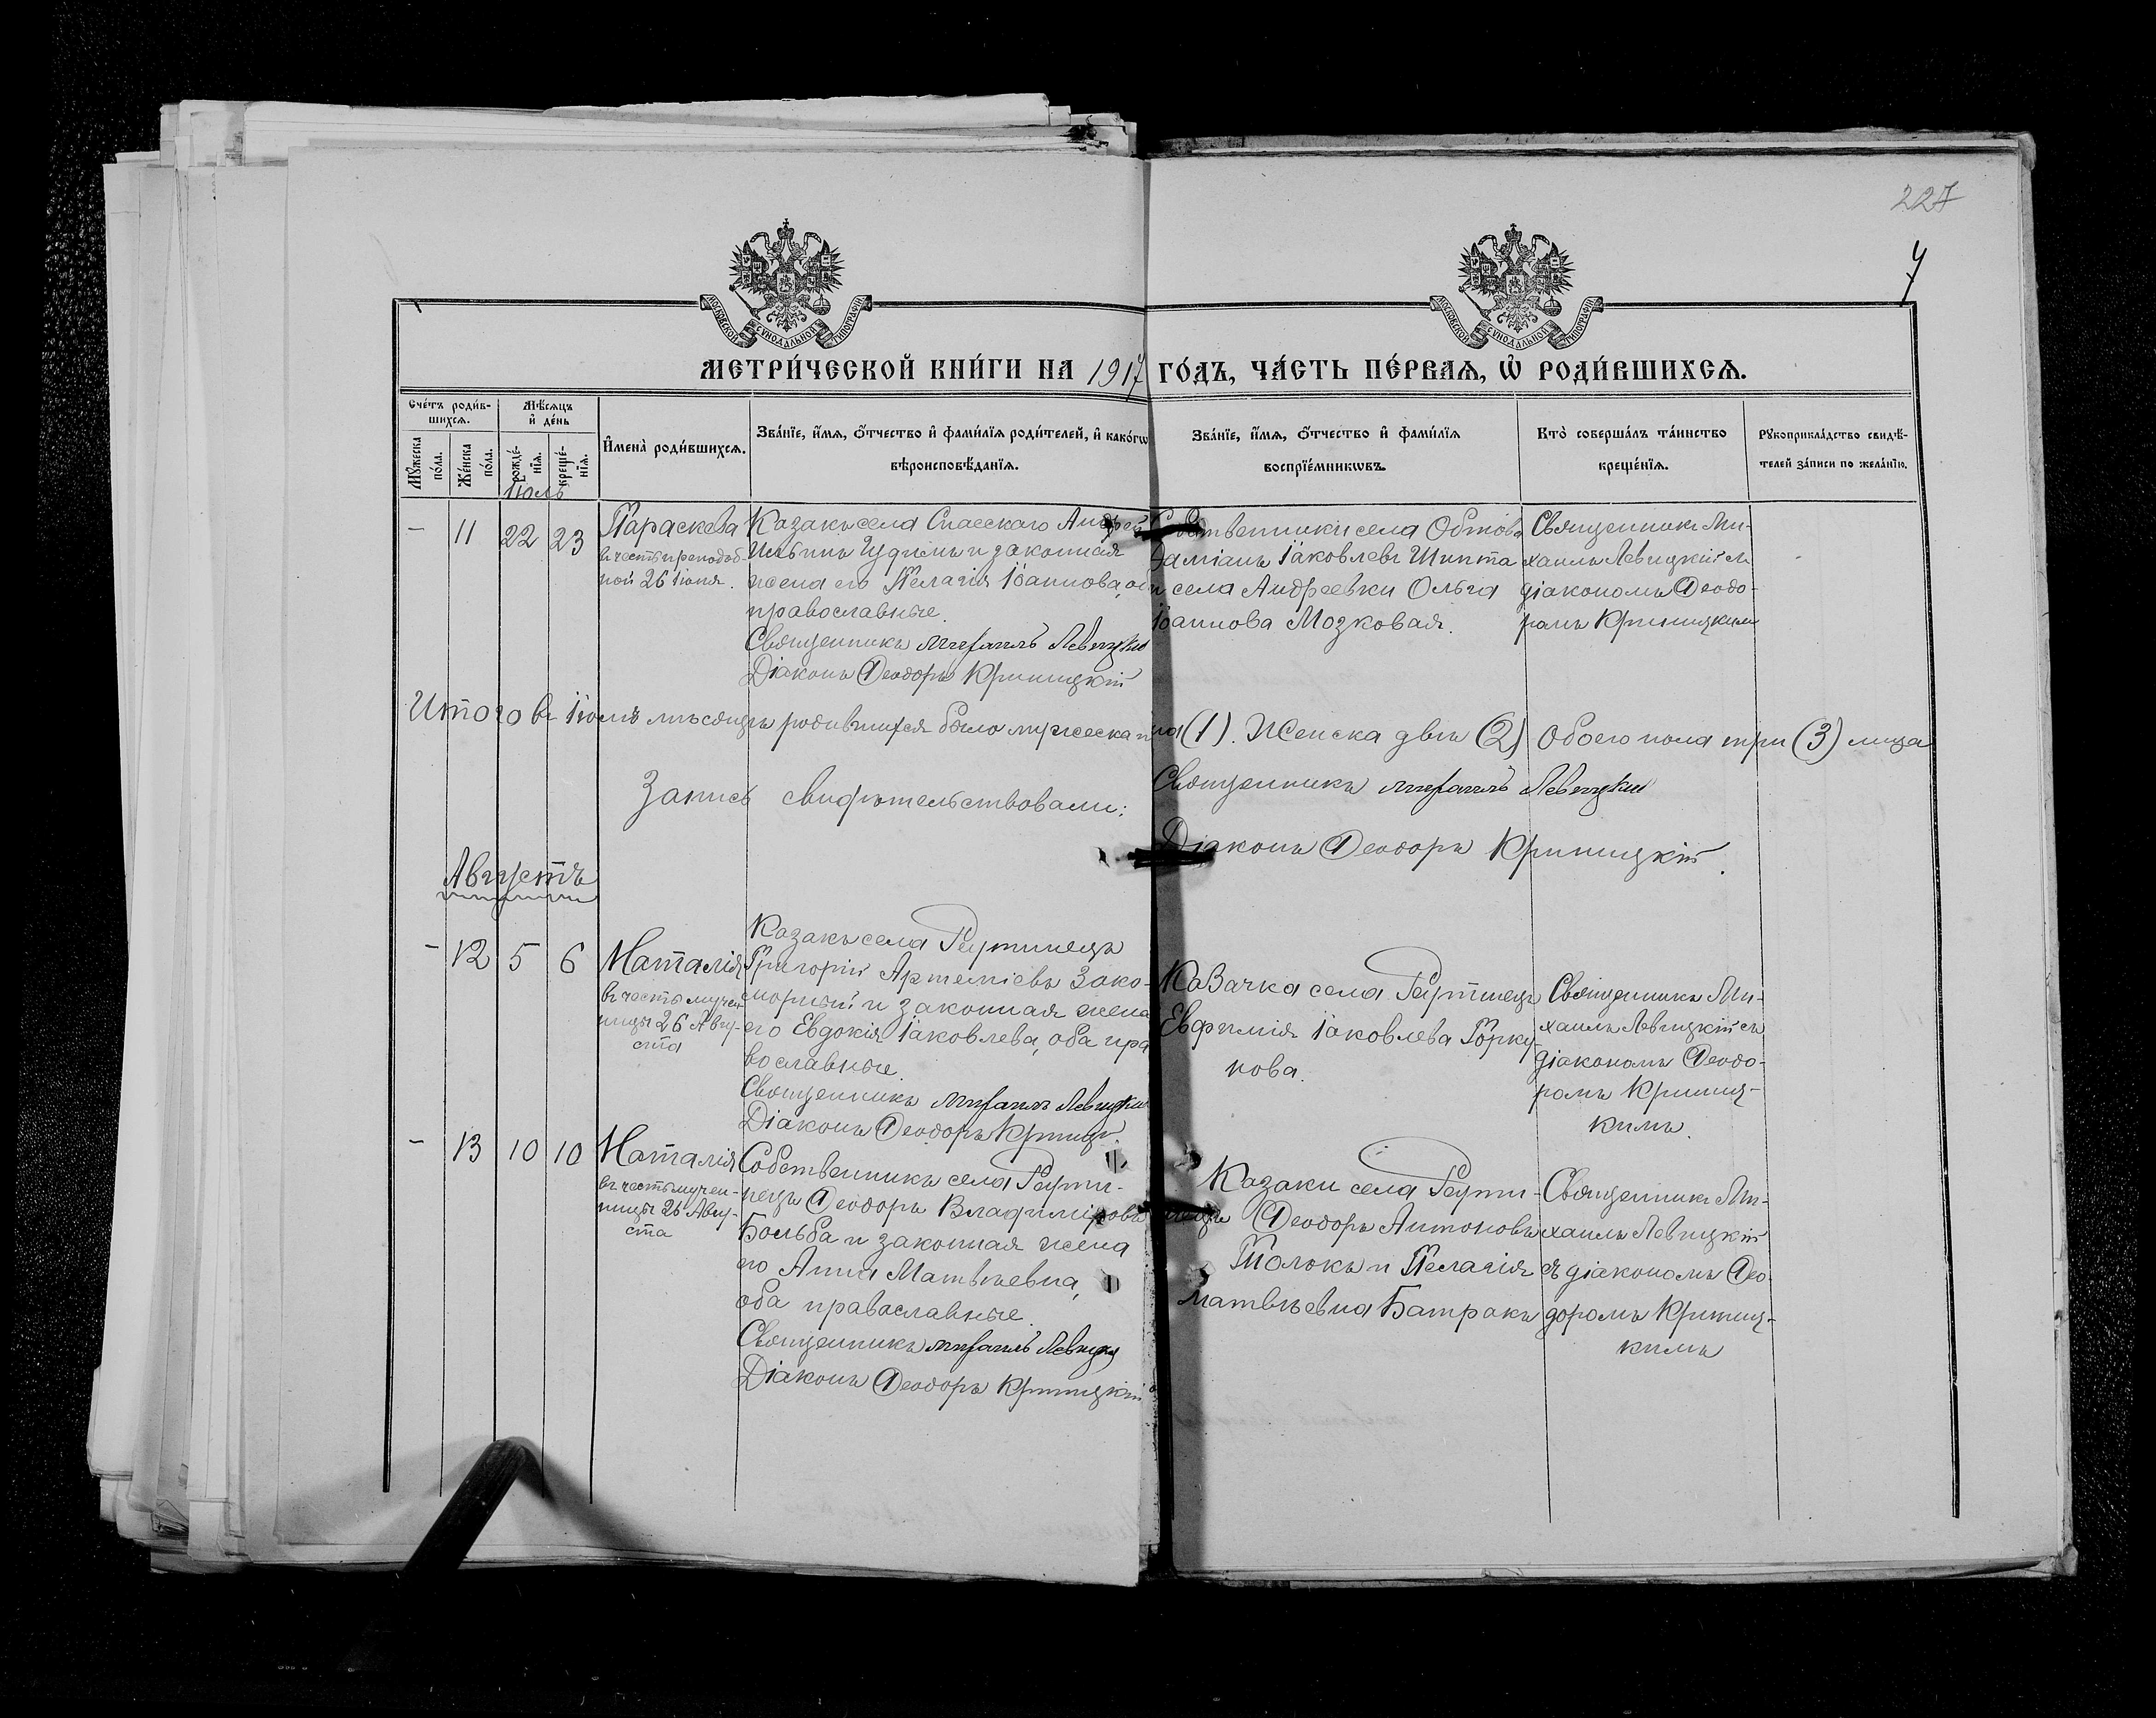 227
7
МОСКОВСКОЙ СУНОДАЛЬНОЙ ТИПОГРАФІИ
МОСКОВСКОЙ СУНОДАЛЬНОЙ ТИПОГРАФІИ
МЕТРИ́ЧЕСКОЙ КНИ́ГИ НА 1917 ГО́ДЪ, ЧА́СТЬ ПЕ́РВАѦ, Ѡ҆ РОДИ́ВШИХСѦ.
Сче́тъ роди́в-
шихсѧ.
Мѣ́сѧцъ
и҆ де́нь
Мꙋ́жеска
по́ла.
Же́нска
по́ла.
рожде́-
нїѧ.
креще́-
нїѧ.
И҆мена̀ роди́вшихсѧ.
Зва́нїе, и҆́мѧ, ѻ҆́тчество и҆ фами́лїѧ роди́телей, и҆ како́гѡ
вѣроисповѣ́данїѧ.
Зва́нїе, и҆́мѧ, ѻ҆́тчество и҆ фами́лїѧ
воспрїе́мникѡвъ.
Кто̀ соверша́лъ та́инство
креще́нїѧ.
Рꙋкоприкла́дство свидѣ́-
телей за́писи по жела́нїю.
Іюль
- 11 22 23
Параскева
въ честь преподоб-
ной 26 Іюня.
Казакъ села Спасскаго Андрей
Ильинъ и законная
жена его Пелагія Іоаннова, оба
православные.
Священникъ Михаилъ Левицкій
Діаконъ Ѳеодоръ Криницкій
Собственники села Обтова
Даміанъ Іаковлевъ Шипта
и села Андреевки Ольга
Іоаннова Мозковая.
Священникъ Ми-
хаилъ Левицкій съ
діакономъ Ѳеодо-
ромъ Криницкимъ
Итого въ Іюлѣ мѣсяцѣ родившихся было мужеска пола (1). Женска двѣ (2) Обоего пола три (3) лица
Запись свидѣтельствовали:
Священникъ Михаилъ Левицкій
Діаконъ Ѳеодоръ Криницкій.
Августъ
- 12 5 6
Наталія
въ честь мучен-
ницы 26 Авгу-
ста
Казакъ села Реутинецъ
Григорій Артеміевъ Зако-
морный и законная жена
его Евдокія Іаковлева, оба пра
вославные.
Священникъ Михаилъ Левицкій
Діаконъ Ѳеодоръ Криницк.
Казачка села Реутинецъ
Евфимія Іаковлева Горку-
нова.
Священникъ Ми-
хаилъ Левицкій съ
діакономъ Ѳеодо-
ромъ Криниц-
кимъ.
- 13 10 10
Наталія
въ честь мучен-
ницы 26 Авгу-
ста
Собственникъ села Реути-
нецъ Ѳеодоръ Владиміровъ
Больба и законная жена
его Анна Матвѣевна,
оба православные.
Священникъ Михаилъ Левицкій
Діаконъ Ѳеодоръ Криницкій
Казаки села Реути-
нецъ Ѳеодоръ Антоновъ
Толокъ и Пелагія
Матвѣевна Батракъ
Священникъ Ми-
хаилъ Левицкій
съ діакономъ Ѳео-
доромъ Криниц-
кимъ